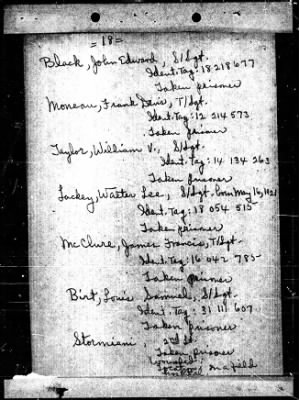 = 18 =
Black, John Edward, S/Sgt.
Ident. Tag: 18 218 677
Taken prisoner
Moneau, Frank Davis, T/Sgt.
Ident. Tag: 12 214 573
Taken prisoner
Taylor, William V., S/Sgt.
Ident. Tag: 14 134 263
Taken prisoner
Lackey, Walter Lee, S/Sgt. born May 16, 1921
Ident. Tag: 18 054 515
Taken prisoner
McClure, James Francis, T/Sgt.
Ident. Tag: 16 042 785
Taken prisoner
Birt, Louis Samuel, S/Sgt.
Ident. Tag: 31 111 607
Taken prisoner
Stormiani, 2nd Lt.
Taken prisoner
in a field